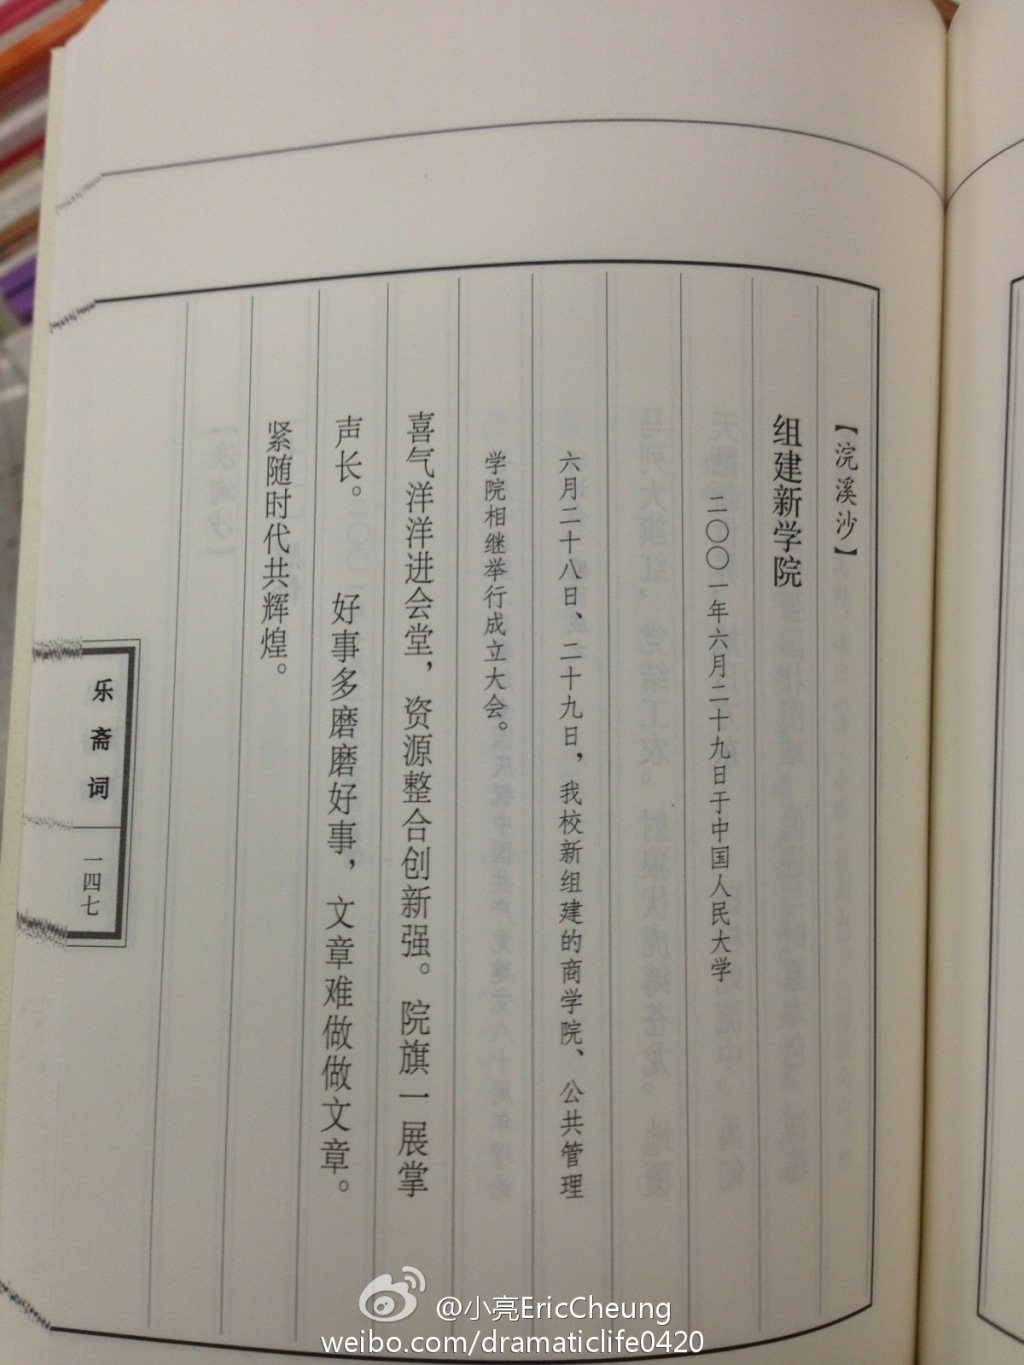 【浣溪沙】
组建新学院
二〇〇一年六月二十九日于中国人民大学
六月二十八日、二十九日，我校新组建的商学院、公共管理
学院相继举行成立大会。
喜气洋洋进会堂，资源整合创新强。院旗一展掌
声长。 好事多磨磨好事，文章难做做文章。
紧随时代共辉煌。
乐斋词
一四七
@小亮EricCheung
weibo.com/dramaticlife0420